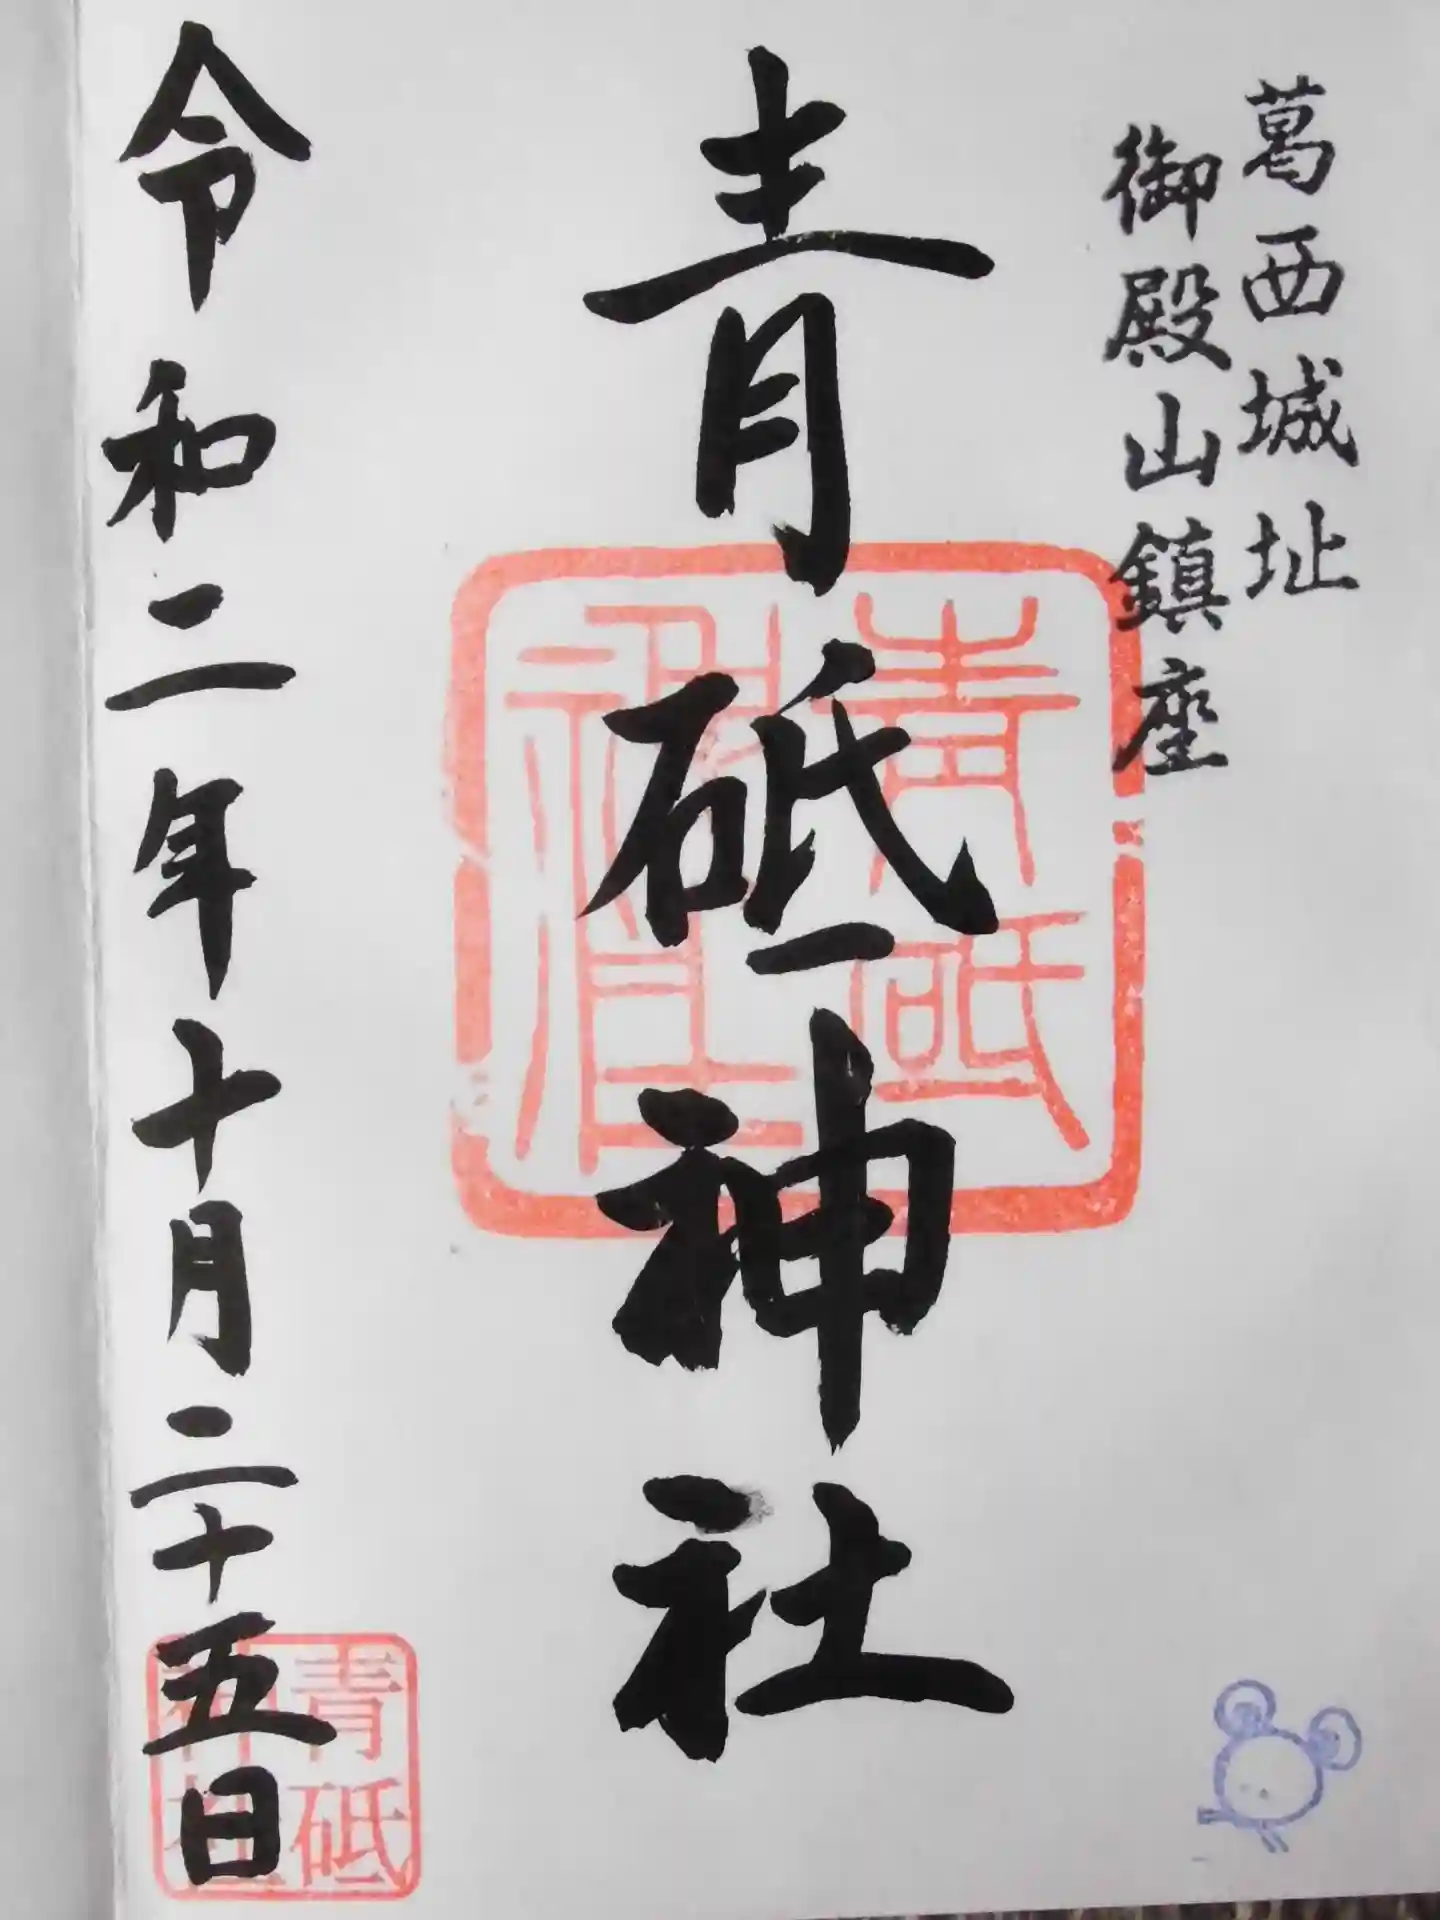 葛西城址
御殿山鎮座
青砥神社
青砥
神社
令和二年十月二十五日
青砥
神社